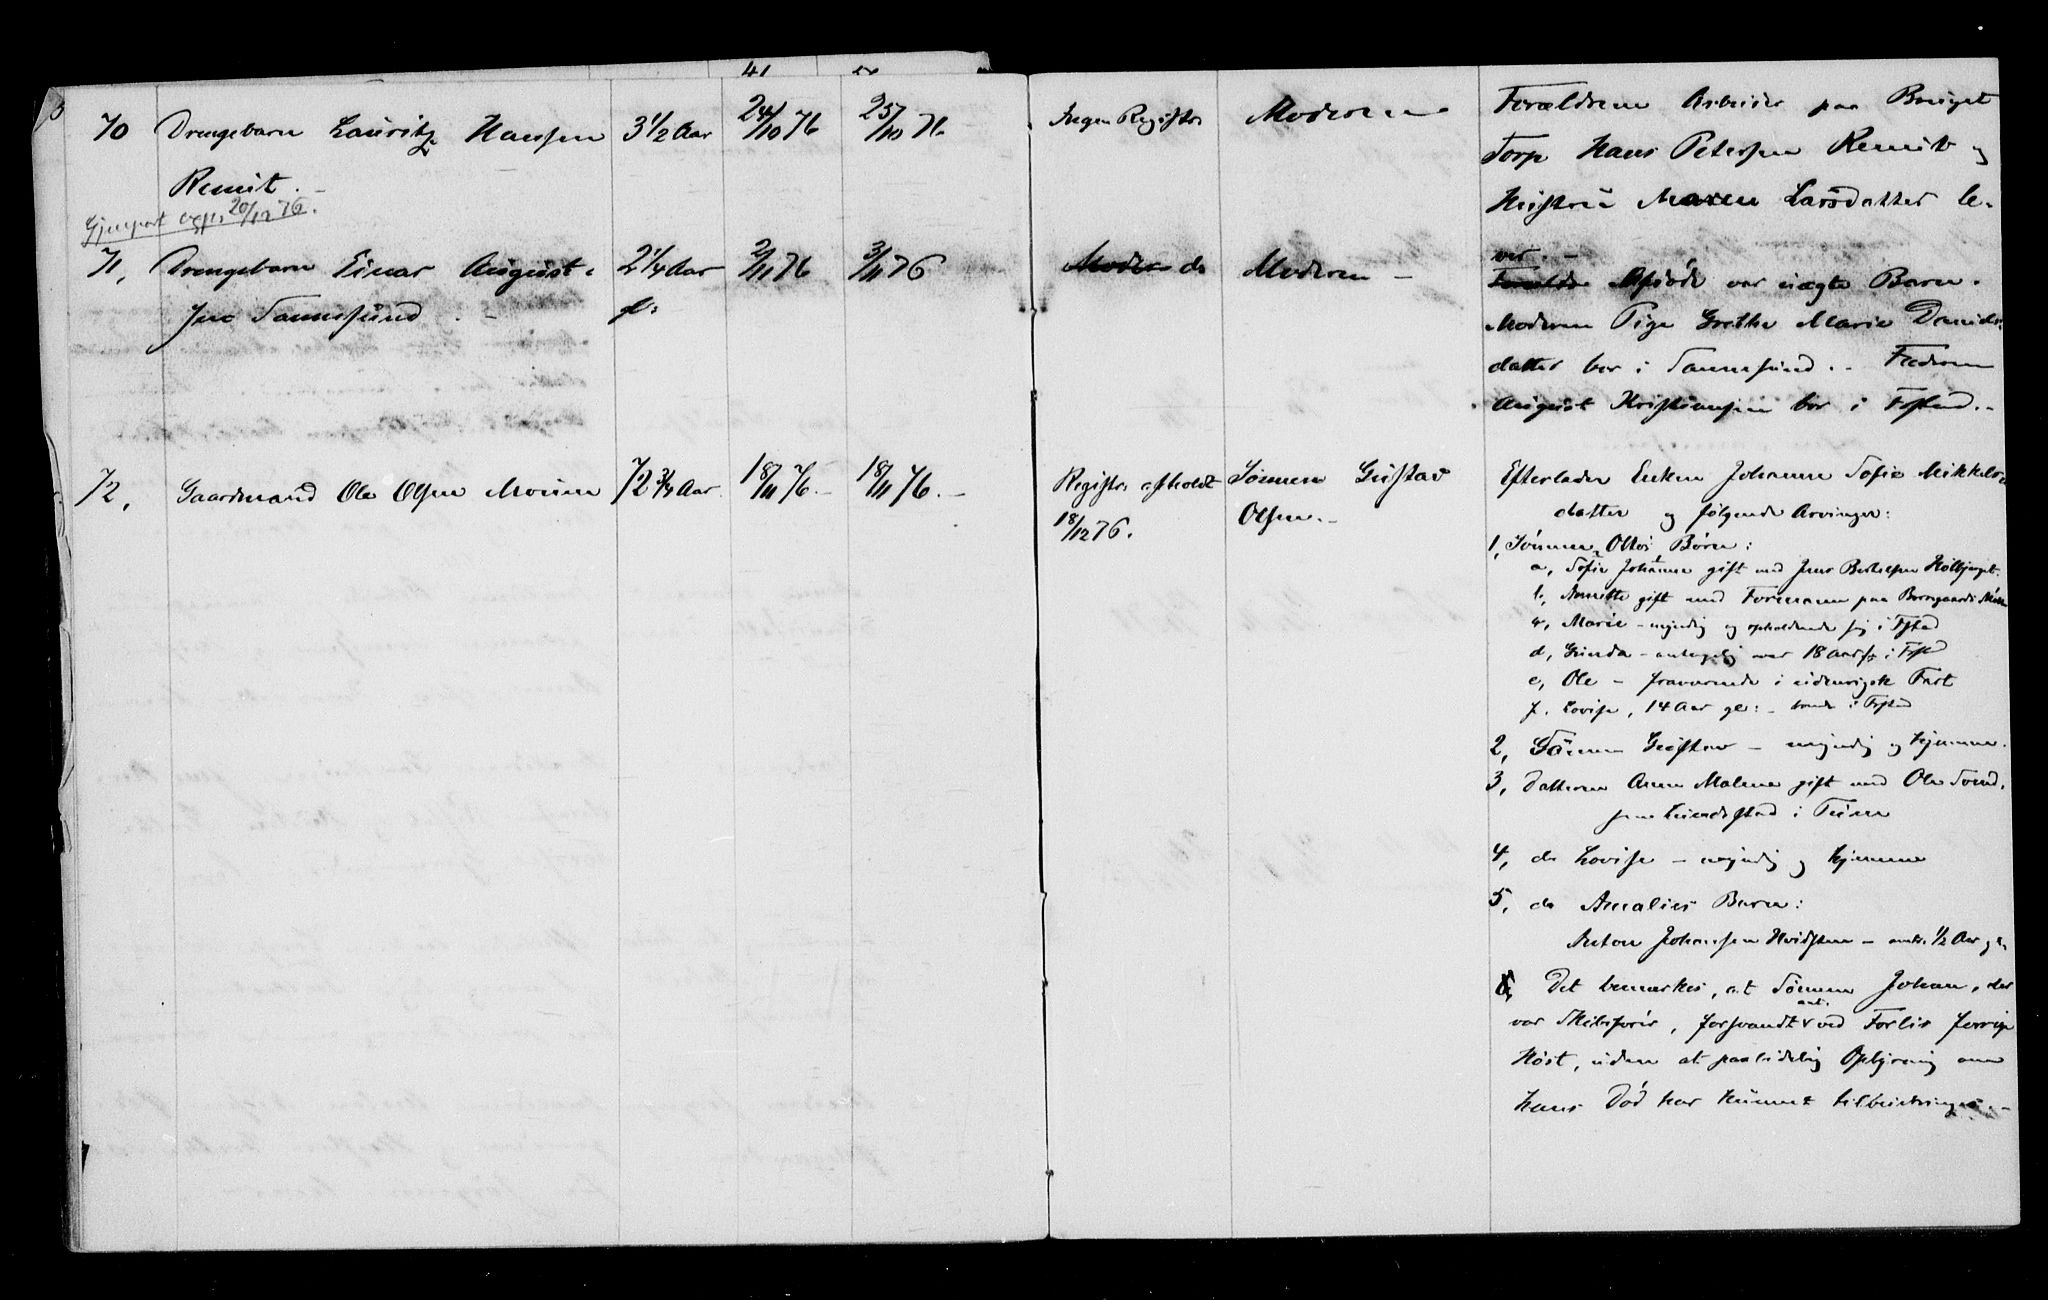 70 Drengebarn Lauritz Hansen 3 1/2 Aar 24/10 76 25/10 76 Ingen Registr. Moderen
Remit. -
Forældrene Arbeider paa Bruget
Torp Hans Petersen Remit og
Hustru Maren Larsdatter le-
ver. -
20/12 76.
71, Drengebarn Einar August- 2 1/4 Aar 2/11 76 3/11 76 Moder do Moderen -
sen Tannesund. - gl:
Forældre Afdøde var uægte Barn.
Moderen Pige Grethe Marie Daniels-
datter bor i Tannesund. - Faderen
August Kristiansen bor i Frstad. -
72, Gaardmand Ole Olsen Moum 72 3/4 Aar. 18/11 76. - 18/11 76. - Registr. afholdt Sønnen Gustav
18/12 76. Olsen. -
Efterlader Enken Johanne Sofie Mikkels-
datter og følgende Arvinger:
1, Sønnen Ottos Børn:
a, Sofie Johanne gift med Jens
b, Annette gift med Formann paa
c, Marie - myndig og opholdende sig i Fstad
d, - antagelig over 18 Aar i Fstd
e, Ole - fraværende i udenrigsk Fart
f. Lovise, 14 Aar gl: - boende i Frstad
2, Sønnen Gustav - myndig og hjemme.
3, Datteren Anne Malene gift med Ole
sen i Tune
4, do Lovise - myndig og hjemme
5, do Amalies Barn:
Anton Johansen Hvidsten - omtr. 1/2 Aar gl.
6, Det bemærkes, at Sønnen Johan, der
var Skibsfører, forsvandt ant. ved Forlis forrige
Høst, uden at paalidelig Oplysning om
hans Død har kunnet tilbringes. -